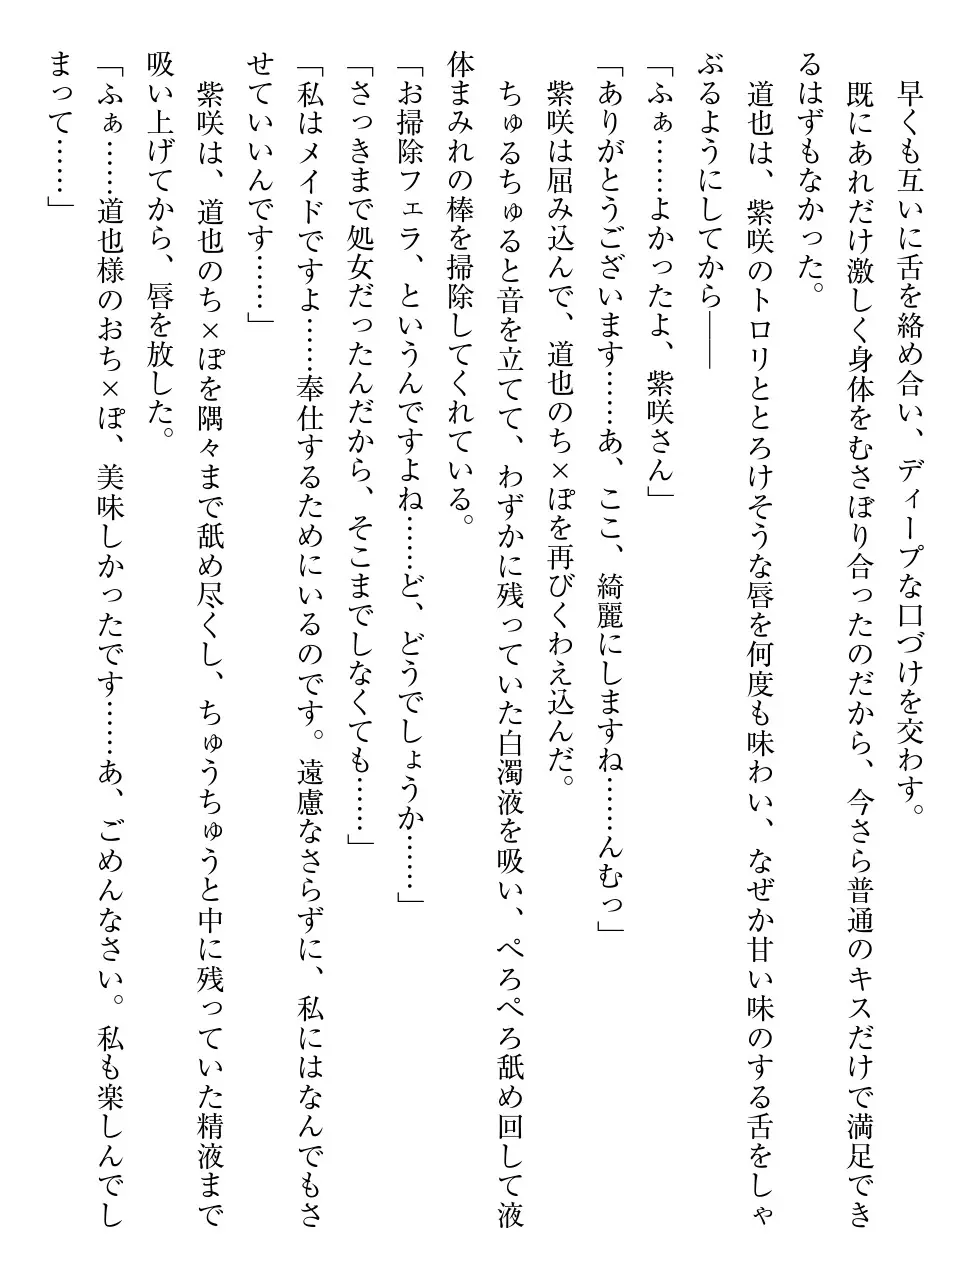 早くも互いに舌を絡め合い、ディープな口づけを交わす。
既にあれだけ激しく身体をむさぼり合ったのだから、今さら普通のキスだけで満足でき
るはずもなかった。
道也は、紫咲のトロリととろけそうな唇を何度も味わい、なぜか甘い味のする舌をしゃ
ぶるようにしてから――
「ふぁ……よかったよ、紫咲さん」
「ありがとうございます……あ、ここ、綺麗にしますね……んむっ」
紫咲は屈み込んで、道也のち×ぽを再びくわえ込んだ。
ちゅるちゅると音を立てて、わずかに残っていた白濁液を吸い、ぺろぺろ舐め回して液
体まみれの棒を掃除してくれている。
「お掃除フェラ、というんですよね……ど、どうでしょうか……」
「さっきまで処女だったんだから、そこまでしなくても……」
「私はメイドですよ……奉仕するためにいるのです。遠慮なさらずに、私にはなんでもさ
せていいんです……」
紫咲は、道也のち×ぽを隅々まで舐め尽くし、ちゅうちゅうと中に残っていた精液まで
吸い上げてから、唇を放した。
「ふぁ……道也様のおち×ぽ、美味しかったです……あ、ごめんなさい。私も楽しんでし
まって……」